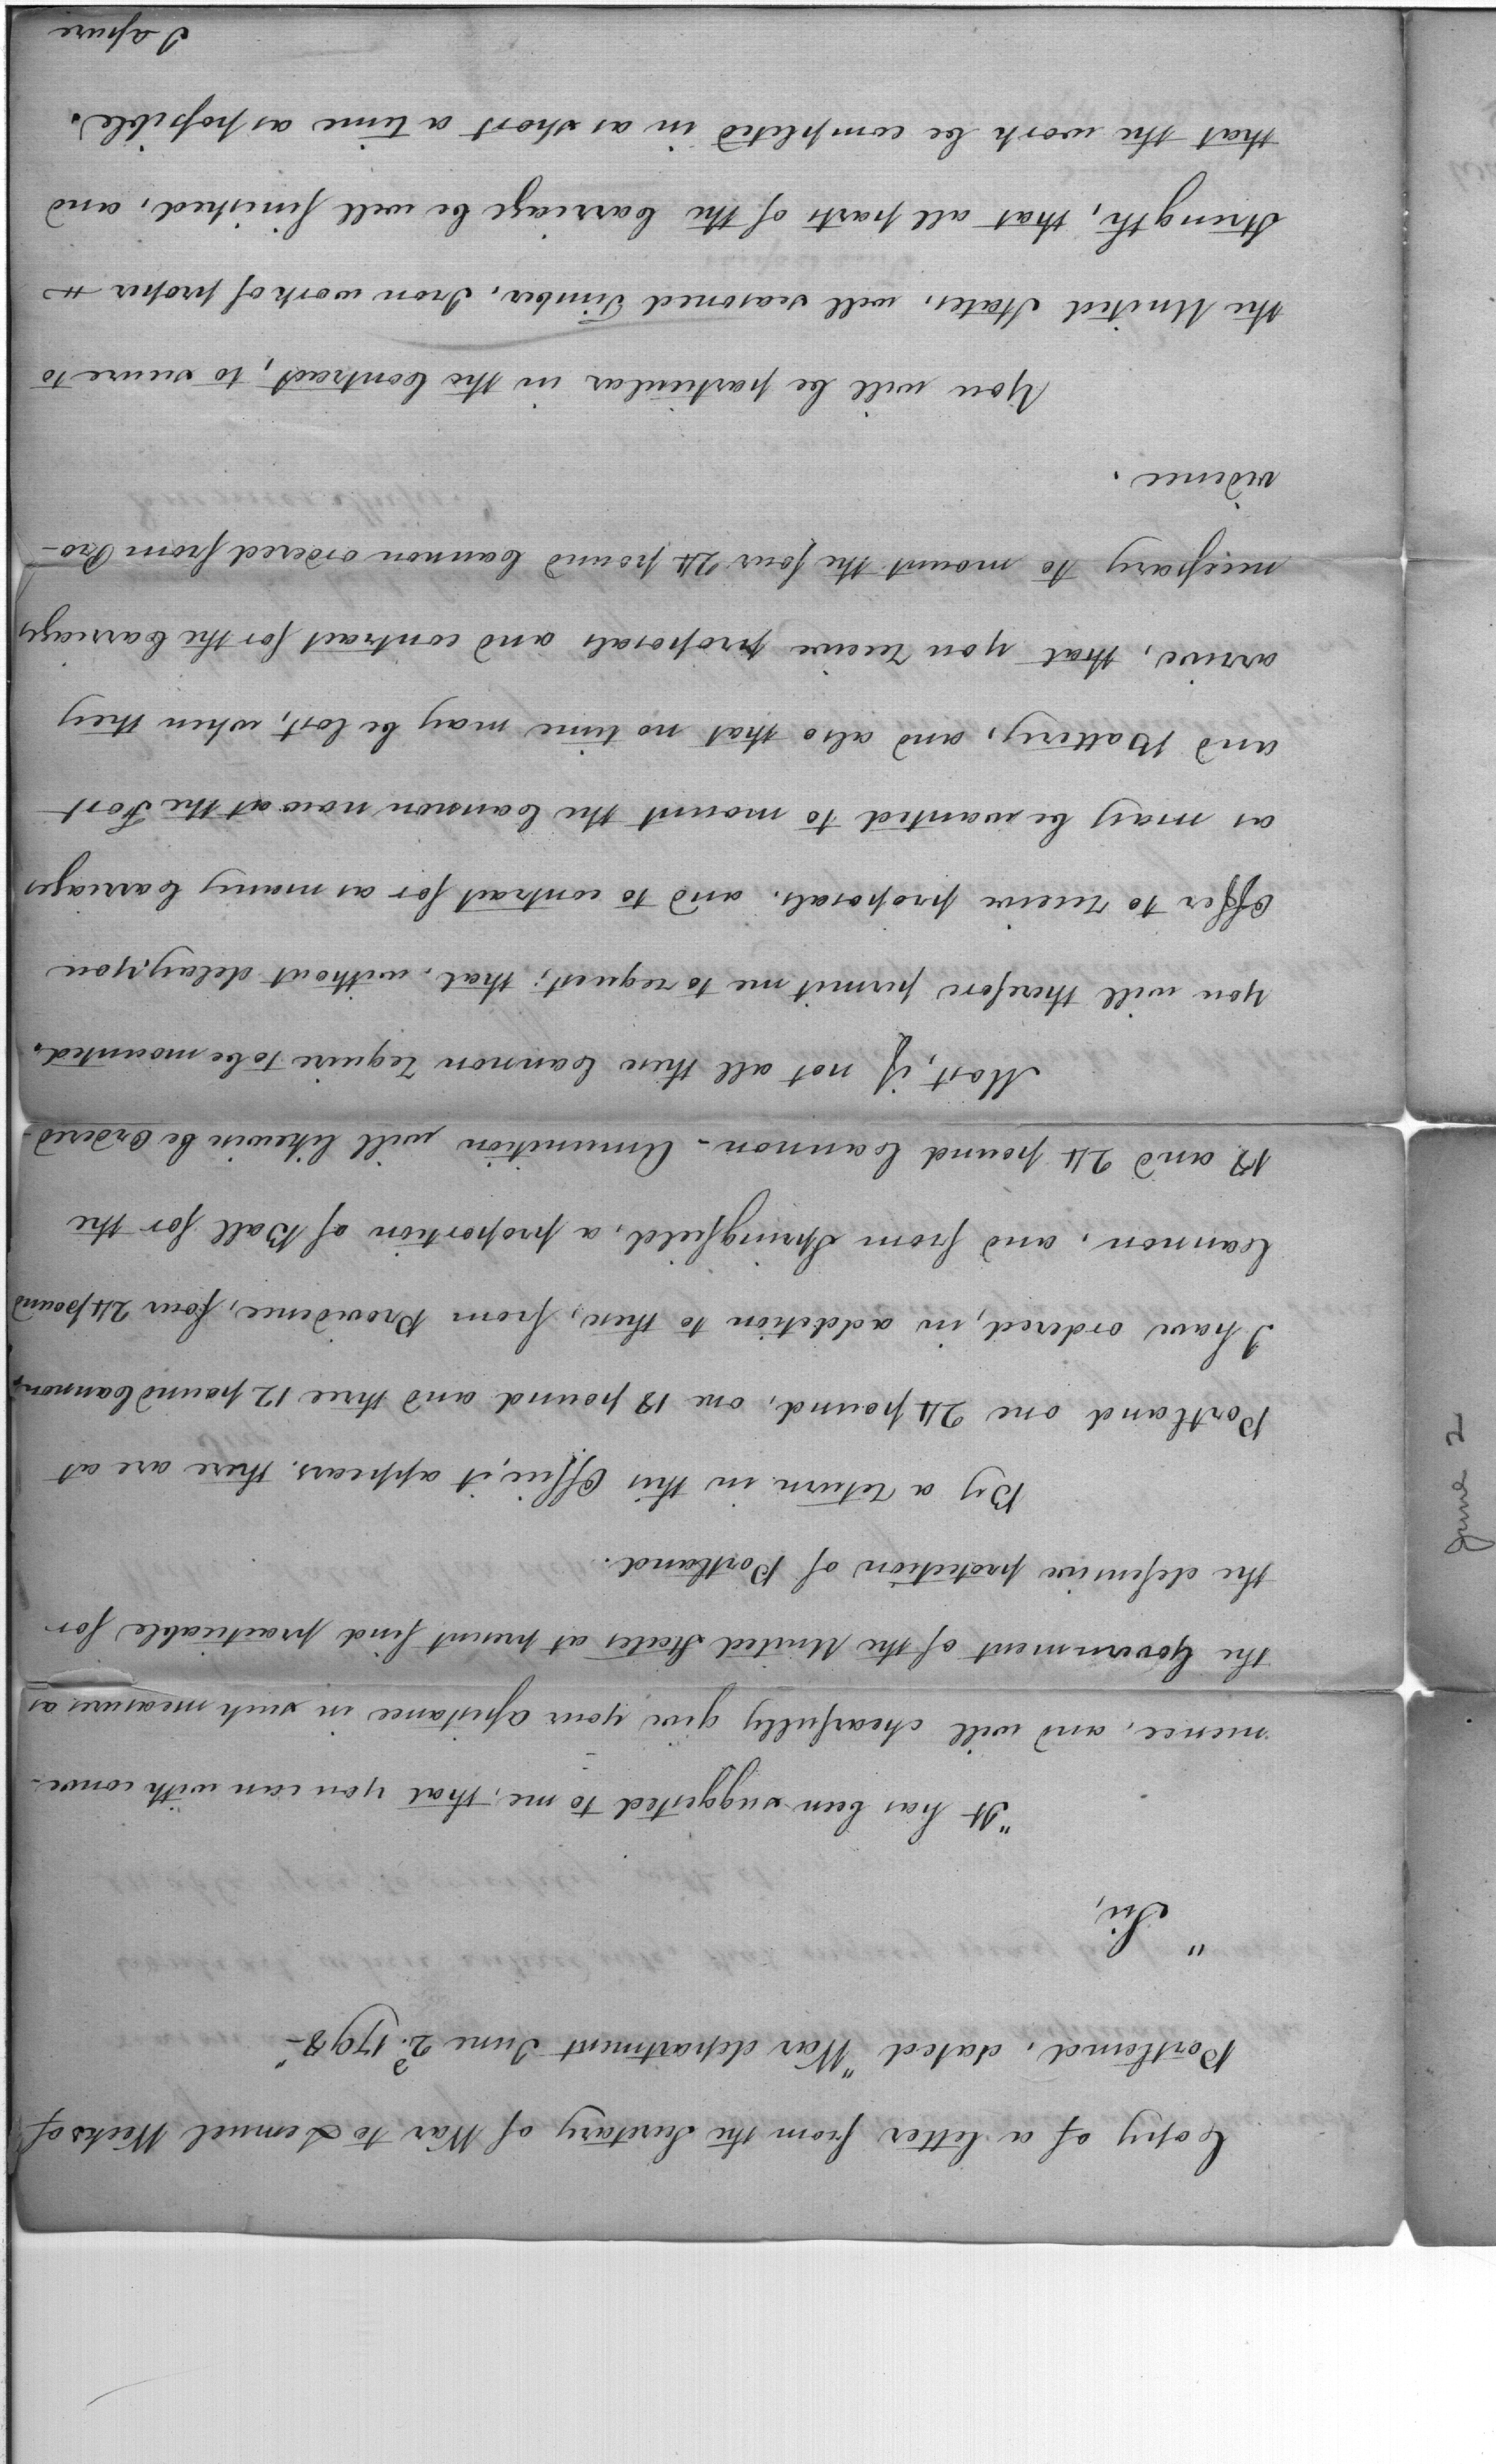 Copy of a letter from the Secretary of War to Lemuel Weeks of
Portland, dated "War department June 2.d 1798"-
" Sir,
"It has been suggested to me, that you can with conve-
nience, and will chearfully give your assistance in such measures as
the Government of the United States at present find practicable for
the defensive protection of Portland.
By a return in this Office, it appears, there are at
Portland one 24 pound, one 18 pound and three 12 pound Cannon,
I have ordered, in addition to these, from Providence, four 24 pound
Cannon, and from Springfield, a proportion of Ball for the
and 24 pound Cannon - Amunition will likewise be Ordered -
Most, if not all these Cannon require to be mounted.
you will therefore permit me to request; that, without delay, you
Offer to receive proposals, and to contract for as many Carriages
as may be wanted to mount the Cannon now at the Fort
and Battery, and also that no time may be lost, when they
arrive, that you receive proposals and contract for the Carriages
necessary to mount the four 24 pound Cannon ordered from Pro-
vidence.
You will be particular in the Contract, to secure to
the United States, well seasoned Timber, Iron work of proper
strength, that all parts of the Carriage be well finished, and
that the work be completed in as short a time as possible.
I assure
June 2